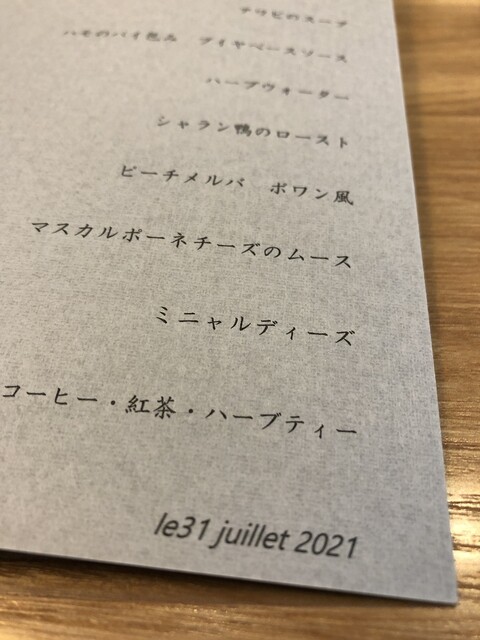 アワビのスープ
ハモのパイ包み ブイヤベースソース
ハーブウォーター
シャラン鴨のロースト
ピーチメルバ ボワン風
マスカルポーネチーズのムース
ミニャルディーズ
コーヒー・紅茶・ハーブティー
le31 juillet 2021